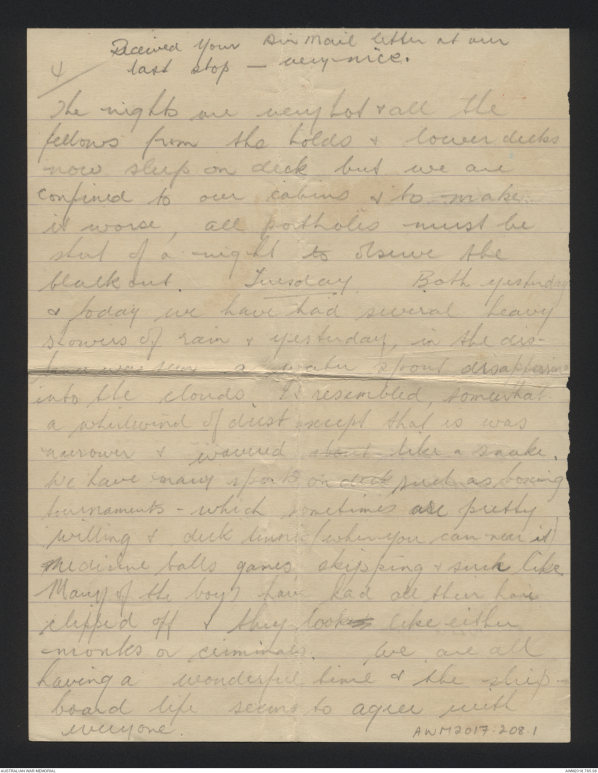 Received your Air Mail letter at our
4/ last stop — very nice.
The nights are very hot & all the
fellows from the holds & lower decks
now sleep on deck but we are
confined to our cabins & to make
it worse, all portholes must be
shut of a night to observe the
blackout. Tuesday Both yesterday
& today we have had several heavy
showers of rain & yesterday, in the dis-
tance was seen a water spout disappearing
into the clouds. It resembled, somewhat
a whirlwind of dust except that is was
narrower & wavered about like a snake.
We have many sports on deck, such as, boxing
tournaments - which sometimes are pretty
willing & deck tennis (when you can near it)
medicine balls games skipping & such like
Many of the boys have had all their hair
clipped off & they look like either
monks or criminals. We are all
having a wonderful time & the ship-
board life seems to agree with
everyone. AWM2017.208.1
AUSTRALIAN WAR MEMORIAL